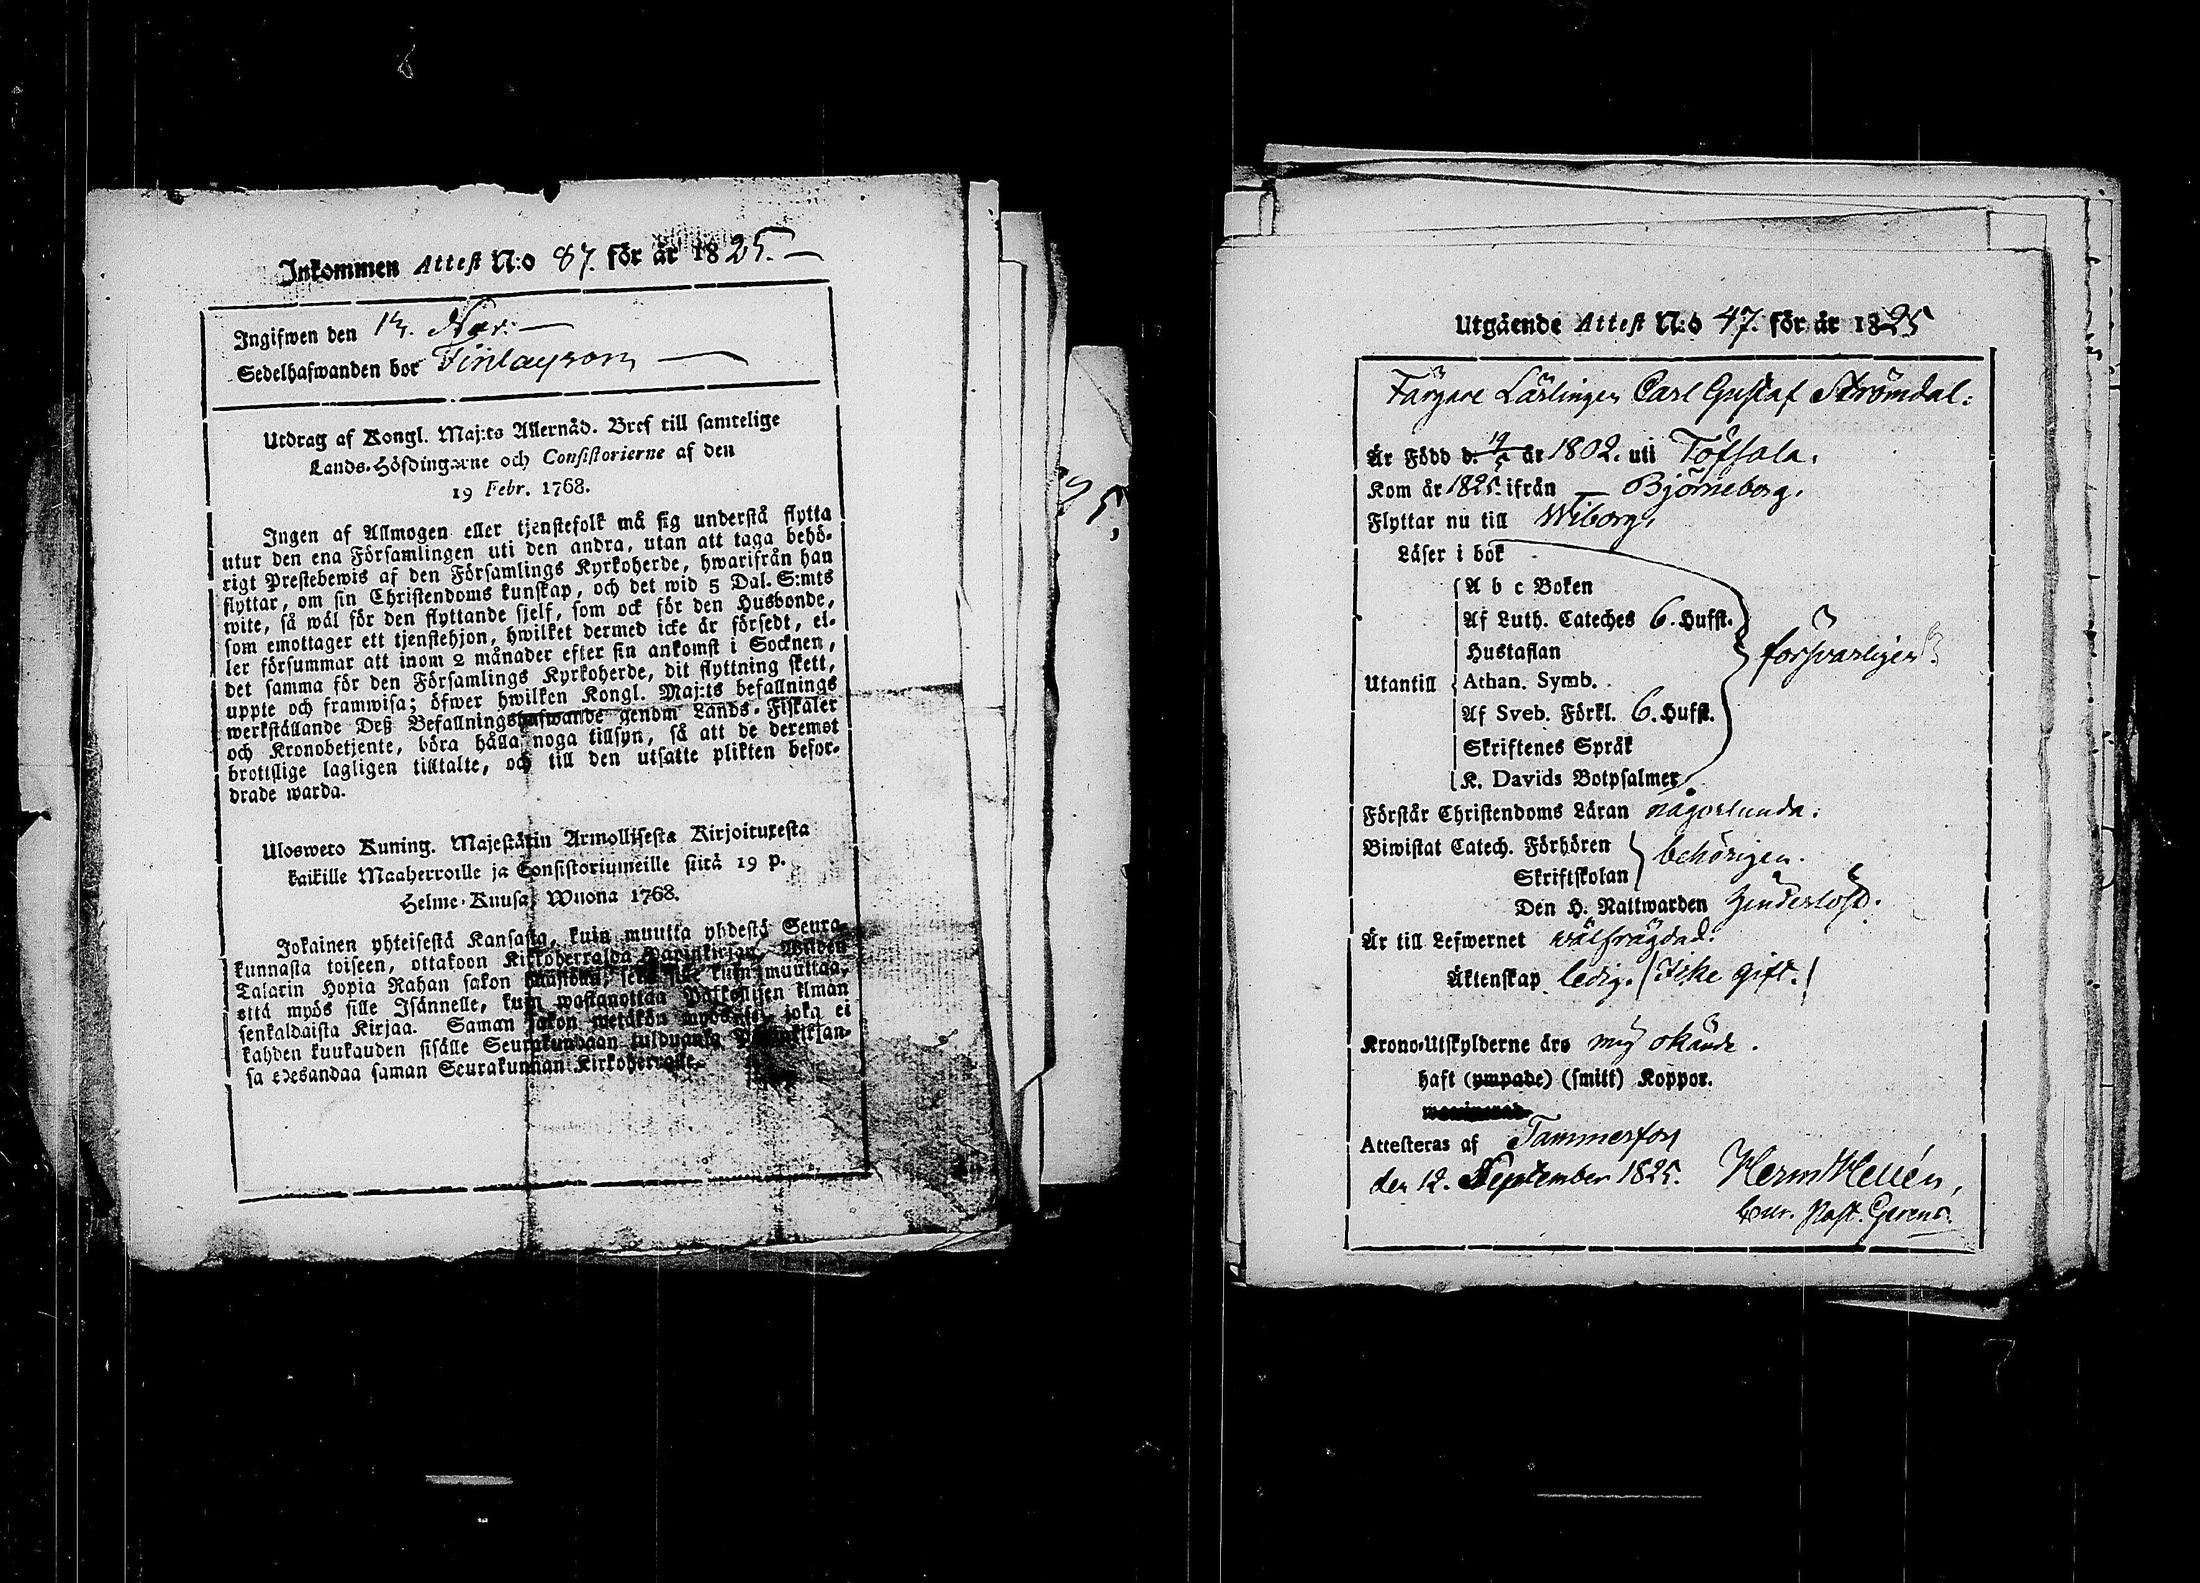 Inkommen Attest N:o 87. för år 1825.
Ingifwen den 13. Nov.
Sedelhafwanden bor Finlayson
Utdrag af Kongl. Maj:ts Allernåd. Bref till samtelige
Lands-Höfdingarne och Consistorierne af den
19 Febr. 1768.
Ingen af Allmogen eller tjenstefolk må sig understå flytta
utur den ena Församlingen uti den andra, utan att taga behö-
rigt Prestebewis af den Församlings Kyrkoherde, hwarifrån han
flyttar, om sin Christendoms kunskap, och det wid 5 Dal. S:mts
wite, så wäl för den flyttande sjelf, som ock för den Husbonde,
som emottager ett tjenstehjon, hwilket dermed icke är försedt, el-
ler försummar att inom 2 månader efter sin ankomst i Socknen,
det samma för den Församlings Kyrkoherde, dit flyttning skett,
uppte och framwisa; öfwer hwilken Kongl. Maj:ts befallnings
werkställande Deß Befallningshafwande genom Lands-Fiskaler
och Kronobetjente, böra hålla noga tillsyn, så att de deremot
brottslige lagligen tilltalte, och till den utsatte plikten befor-
drade warda.
Ulosweto Kuning. Majestätin Armollisesta Kirjoituxesta
kaikille Maaherroille ja Consistoriumeille siitä 19 p.
Helme-Kuusa, Wuona 1768.
Jokainen yhteisestä Kansasta, kuin muutta yhdestä Seura-
kunnasta toiseen, ottakoon Kirkoherralda Papinkirjan, Wiiden
Talarin Hopia Rahan sakon kuin muuttaa,
että myös sille Isännelle, kuin wastanottaa Palkollisen ilman
senkaldaista Kirjaa. Saman sakon wetäkön myös joka ei
kahden kuukauden sisälle Seurakundaan tulduansa
sa edesandaa saman Seurakunnan Kirkoherralle.
Utgående Attest N:o 47. för år 1825
Färgare Lärlingen Carl Gustaf Strömdal:
Är Född d. 19/5 år 1802. uti Töfsala.
Kom år 1825. ifrån — Björneborg.
Flyttar nu till Wiborg.
Läser i bok
A b c Boken
Af Luth. Cateches 6. Hufst.
Hustaflan
försvarligen
Utantill Athan. Symb.
Af Sveb. Förkl. 6. Hufst.
Skriftenes Språk
K. Davids Botpsalmer
Förstår Christendoms Läran någorlunda.
Biwistat Catech. Förhören
behörigen.
Skriftskolan
Den H. Nattwarden
Är till Lefwernet wälfrägdad.
Äktenskap ledig. (Icke gift.)
Krono-Utskylderne äro mig okände.
haft (ympade) (smitt) Koppor.
Attesteras af Tammerfors
den 12. September 1825. Herm Hellén,
Cur. Past. Gerens.